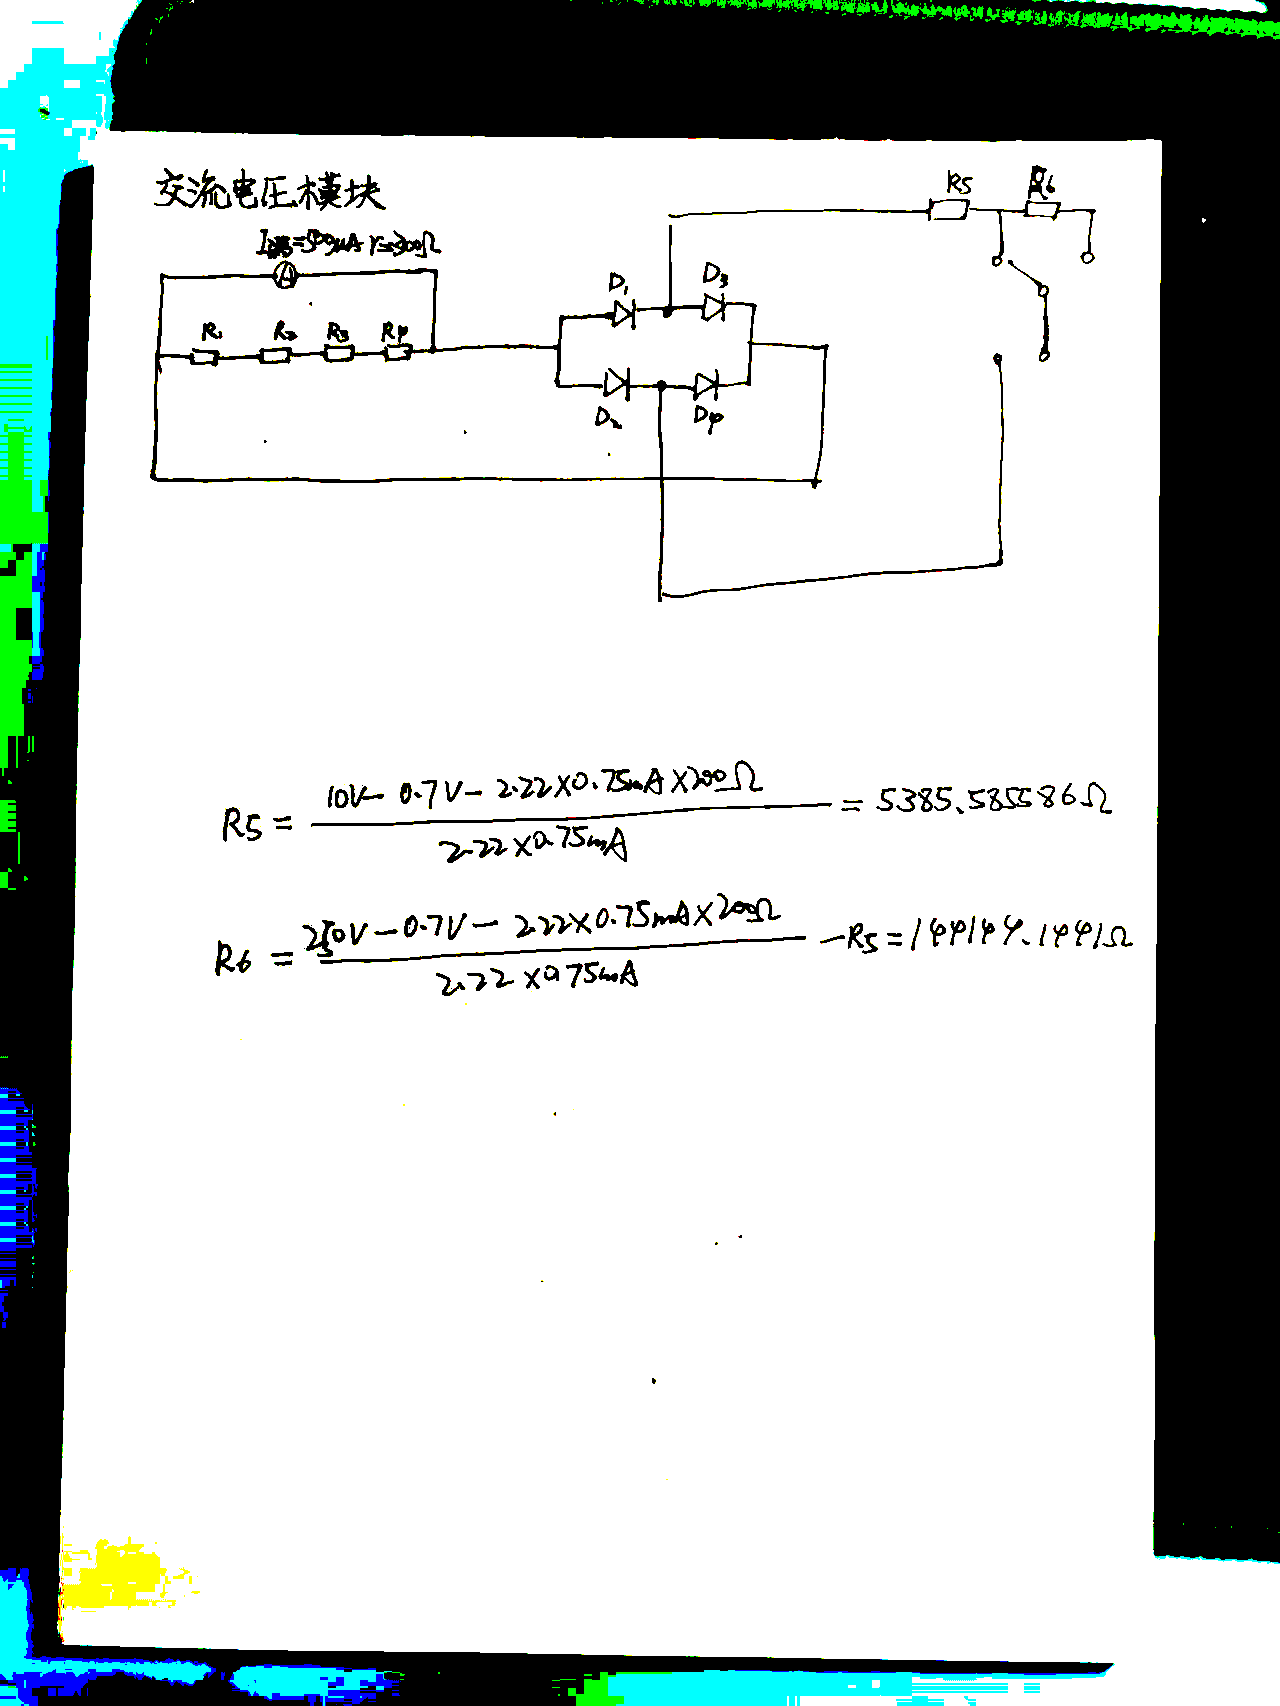 交流电压模块
R5 R6
=500μA r=300Ω
A
D1 D3
R1 R2 R3 R4
D2 D4
R5 = (10V - 0.7V - 2.22×0.75mA×200Ω) / (2.22×0.75mA) = 5385.585586Ω
R6 = (250V - 0.7V - 2.22×0.75mA×200Ω) / (2.22×0.75mA) - R5 = 144144.1441Ω